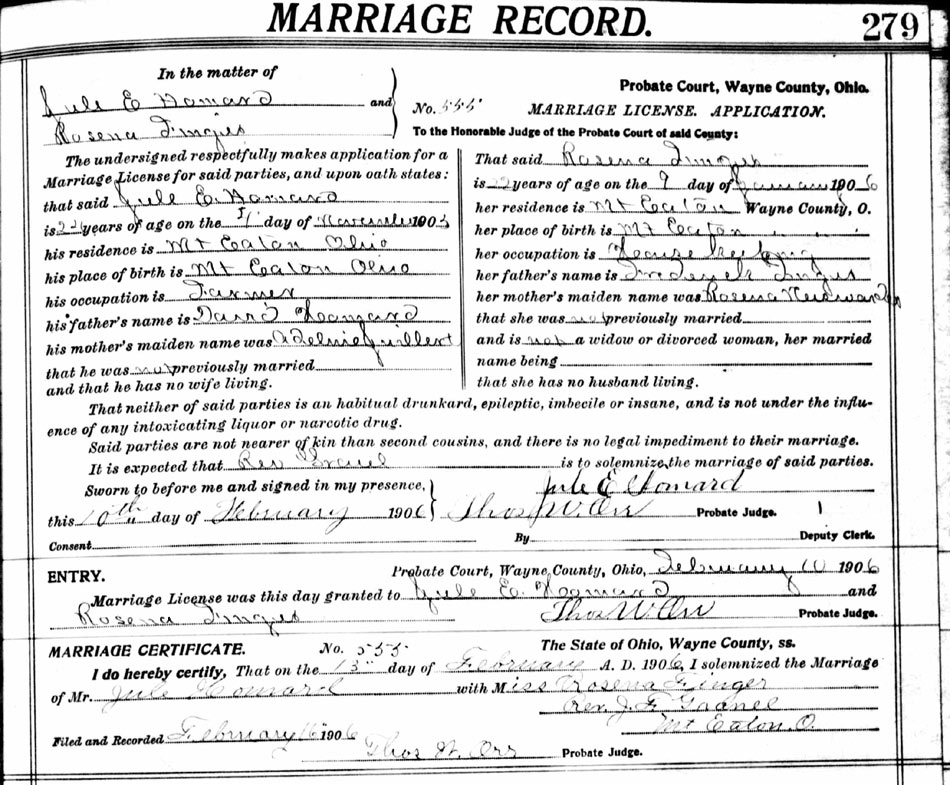 MARRIAGE RECORD.
279
In the matter of
Jule E Homard and
Rosena Finger
Probate Court, Wayne County, Ohio.
No. 555 MARRIAGE LICENSE. APPLICATION.
To the Honorable Judge of the Probate Court of said County:
The undersigned respectfully makes application for a
Marriage License for said parties, and upon oath states:
that said Jule E. Homard
is years of age on the day of November 190
his residence is Mt Eaton Ohio
his place of birth is Mt Eaton Ohio
his occupation is Farmer
his father's name is David Homard
his mother's maiden name was
that he was not previously married
and that he has no wife living.
That said Rosena
is 22 years of age on the 9 day of January 1906
her residence is Mt Eaton Wayne County, O.
her place of birth is Mt Eaton
her occupation is House keeping
her father's name is Frederick
her mother's maiden name was Rosena
that she was not previously married
and is not a widow or divorced woman, her married
name being
that she has no husband living.
That neither of said parties is an habitual drunkard, epileptic, imbecile or insane, and is not under the influ-
ence of any intoxicating liquor or narcotic drug.
Said parties are not nearer of kin than second cousins, and there is no legal impediment to their marriage.
It is expected that Rev is to solemnize the marriage of said parties.
Sworn to before me and signed in my presence, Jule E Homard
this 10th day of February 1906 Thos W. Orr Probate Judge.
Consent By Deputy Clerk.
ENTRY. Probate Court, Wayne County, Ohio, February 10 1906
Marriage License was this day granted to Jule E. Homard and
Rosena Thos W. Orr Probate Judge.
MARRIAGE CERTIFICATE. No. 555 The State of Ohio, Wayne County, ss.
I do hereby certify, That on the 13" day of February A. D. 1906, I solemnized the Marriage
of Mr. Jule Homard with Miss Rosena Finger
Rev. J. F.
Mt Eaton. O.
Filed and Recorded February 16" 1906
Thos W. Orr Probate Judge.